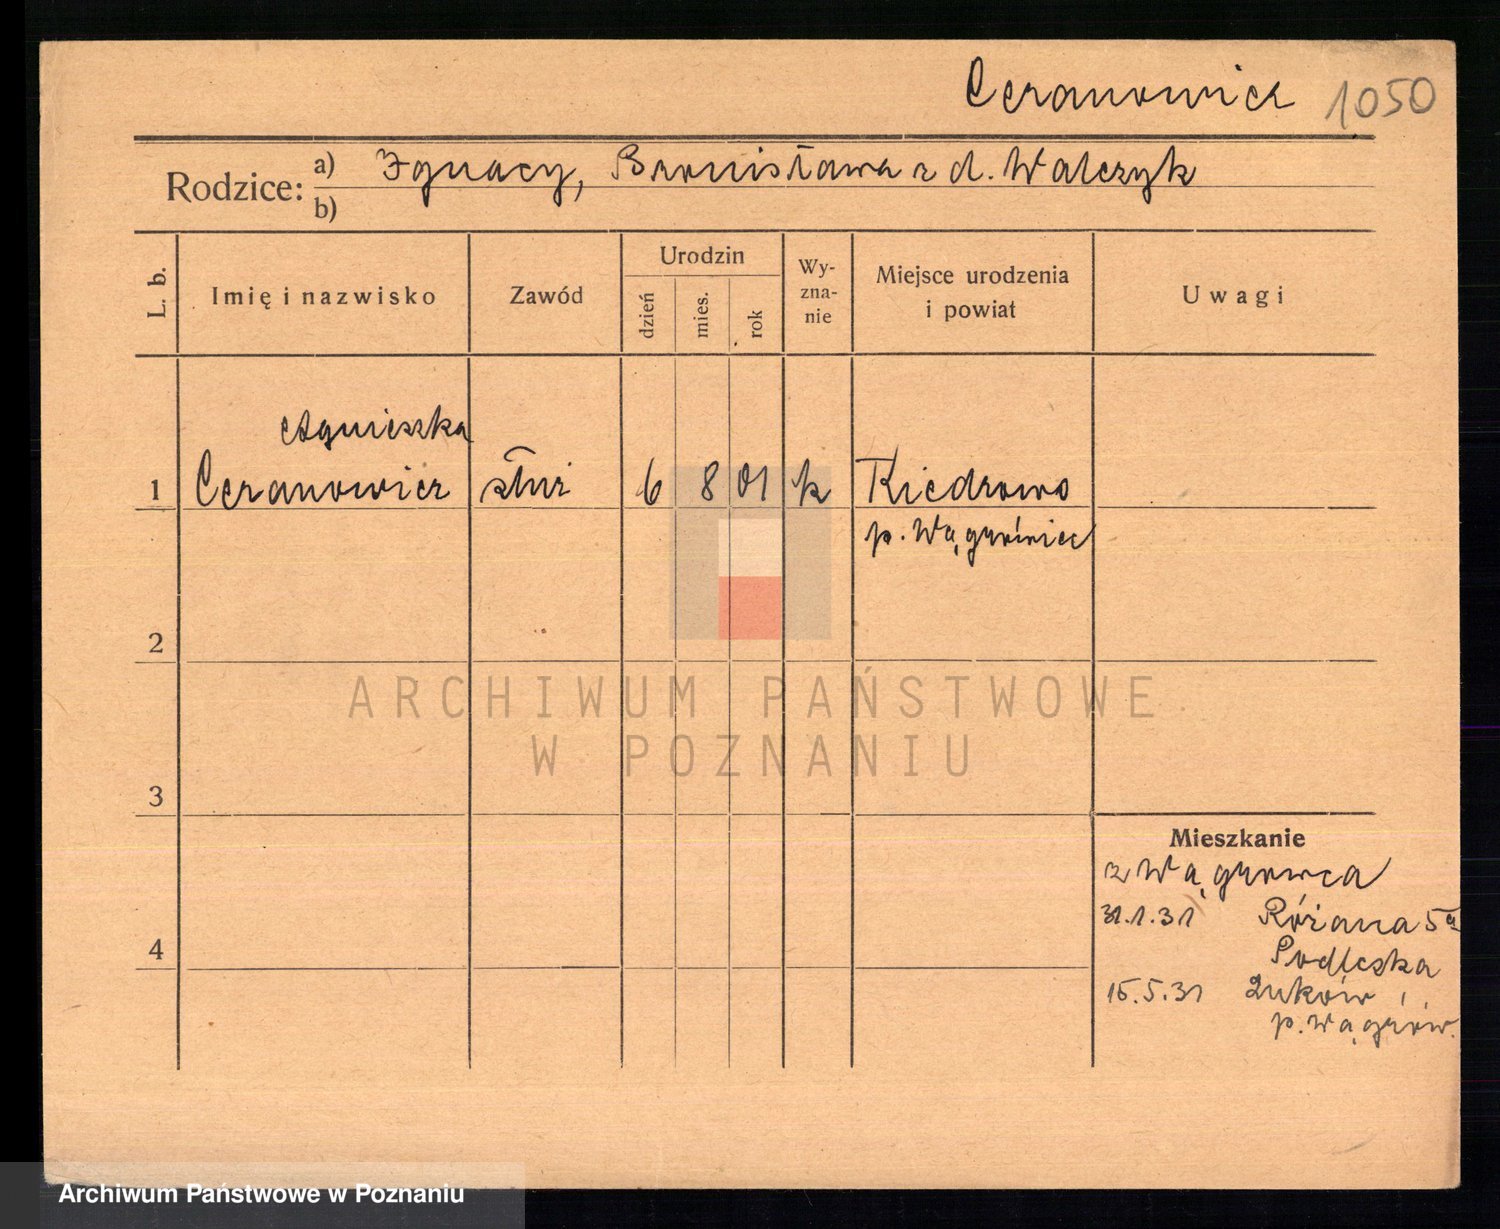 Ceranowicz 1050
Rodzice: a) Ignacy, Bronisława z d. Walczyk
b)
L. b. Imię i nazwisko Zawód Urodzin dzień mies. rok Wy-zna-nie Miejsce urodzenia i powiat Uwagi
Agnieszka
1 Ceranowicz służ 6 8 01 k Kiedrowo
p. Wągrówiec
2
ARCHIWUM PAŃSTWOWE
W POZNANIU
3
Mieszkanie
z Wągrowca
31.1.31 Różana 5a
4
15.5.31 Łuków
p. Wągrów.
Archiwum Państwowe w Poznaniu